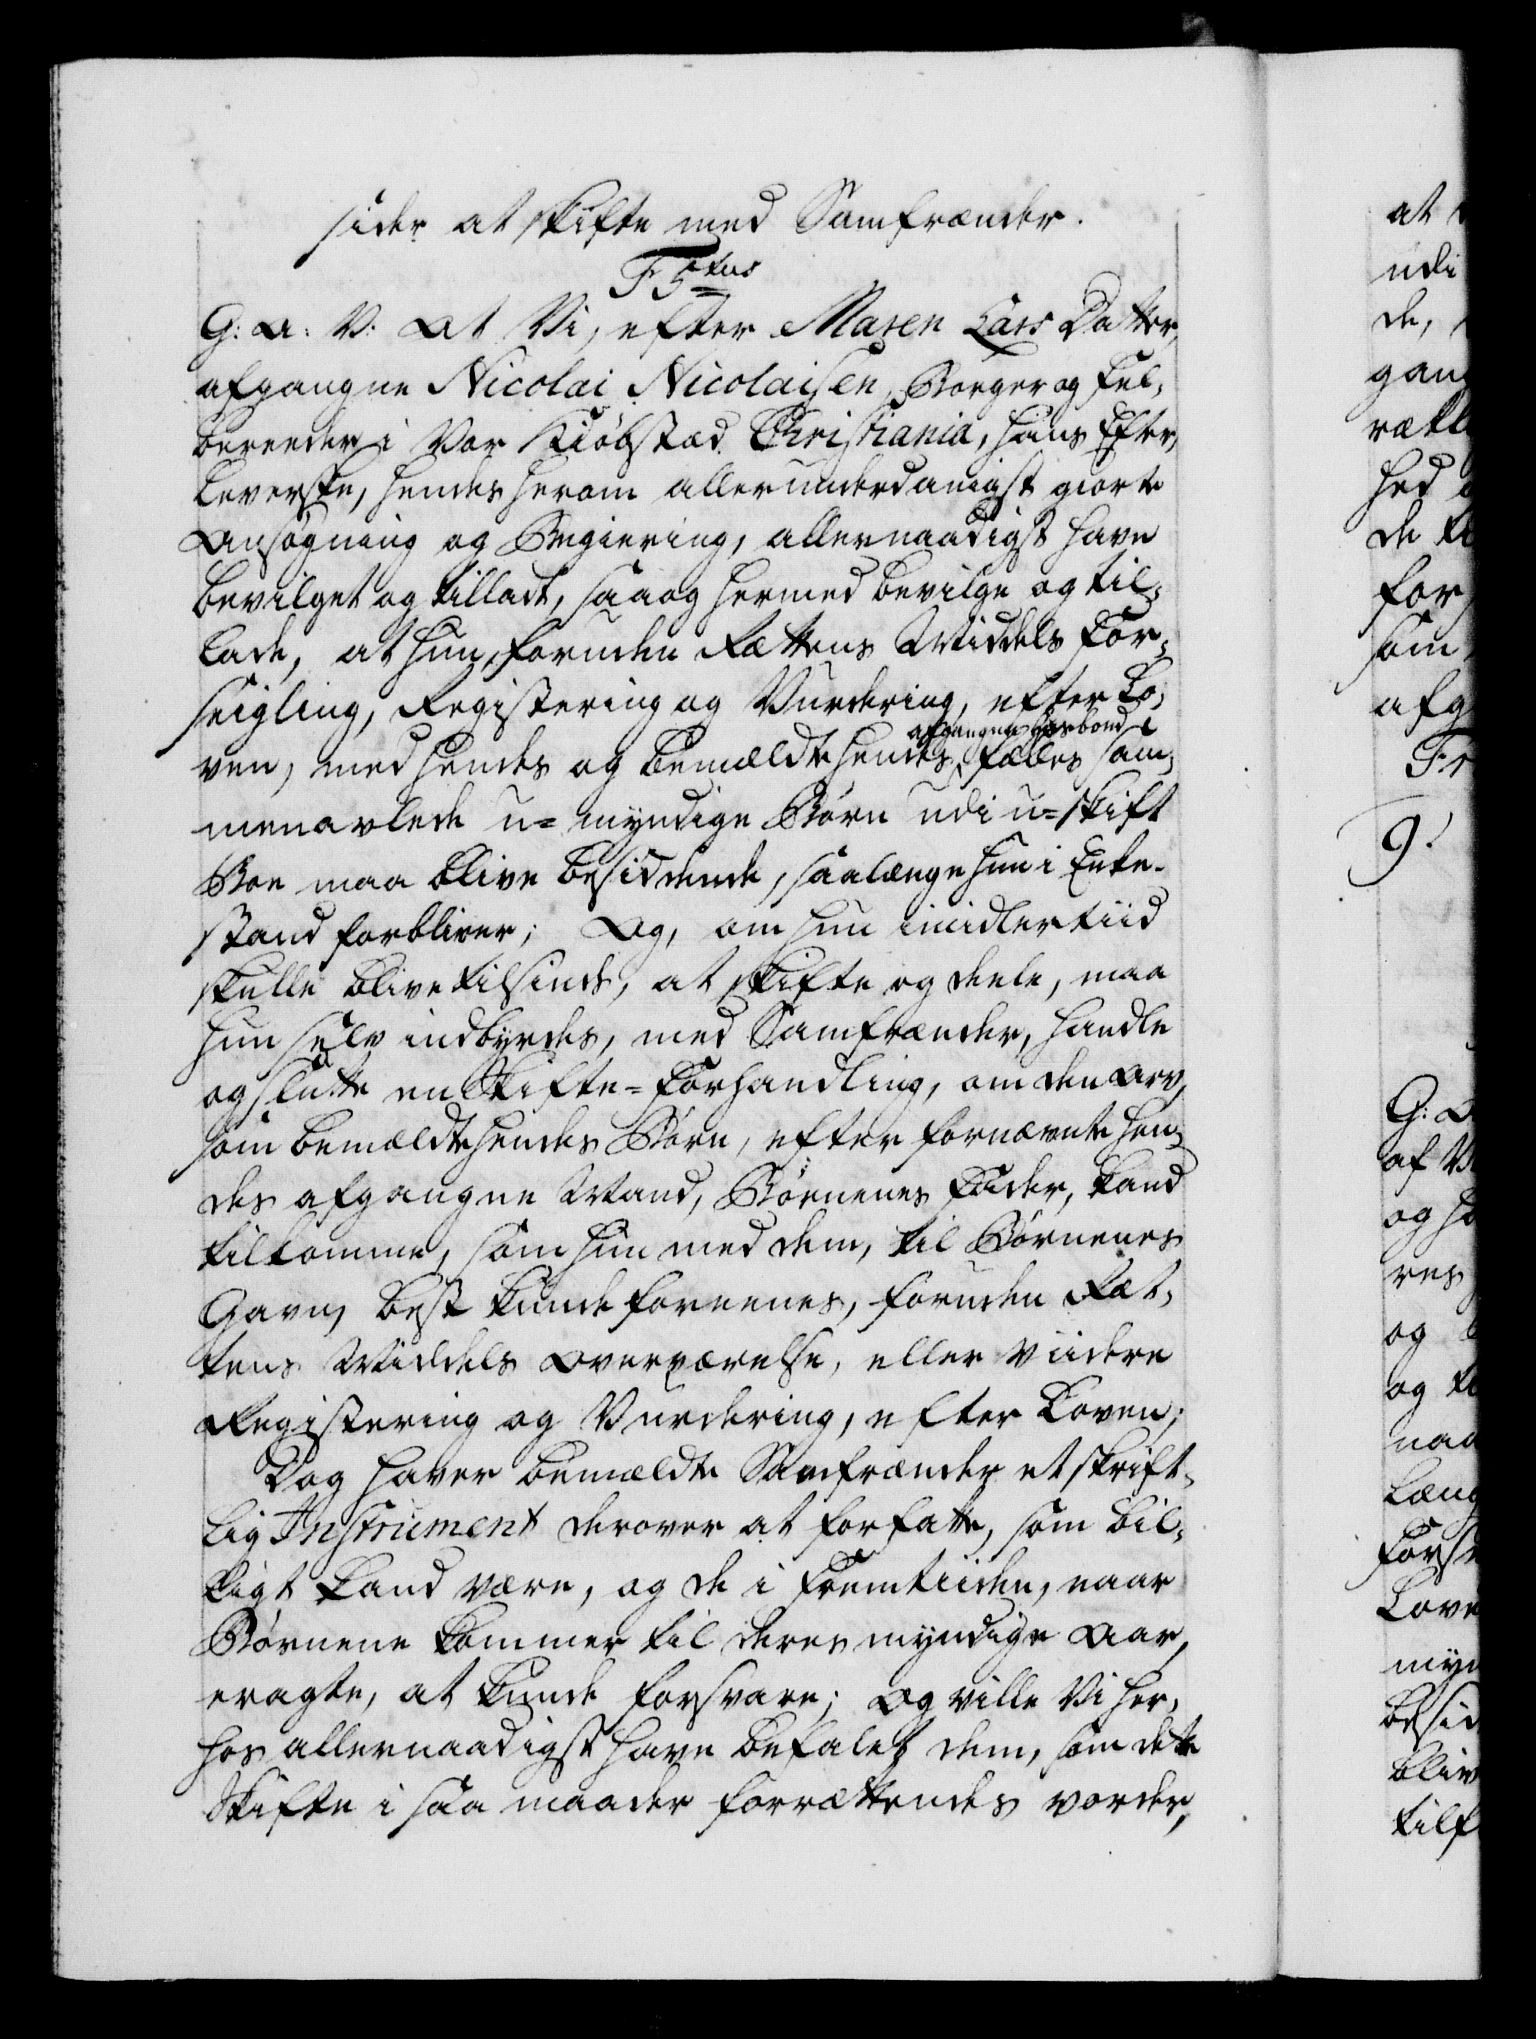 sider at skifte med Samfrænder.
F 5tus
G: A: V: At Vi, efter Maren Lars Datter,
afgangne Nicolai Nicolaisen, Borger og Fel-
bereeder i Vor Kiøbstæd Christiania, hans Efter-
leverske, hendes herom allerunderdanigst giorte
Ansøgning og Begiering, allernaadigst have
bevilget og tilladt, saa og hermed bevilge og til-
lade, at hun, foruden Rættens Middels For-
seigling, Registering og Vurdering, efter Lo-
afgangne Hosbond
ven, med hendes og bemældte hendes fælles sam-
menavlede u=myndige Børn udi u=skift
Boe maa blive besiddende, saalænge hun i Enke-
stand forbliver; Og, om hun imidlertiid
skulle blive tilsinds, at skifte og deele, maa
hun selv indbyrdes, med Samfrænder, handle
og slutte en Skifte=Forhandling, om den Arv,
som bemældte hendes Børn, efter fornævnte hen-
des afgangne Mand, Børnenes Fader, kand
tilkomme, som hun med dem, til Børnenes
Gavn, best kunde foreenes, foruden Ræt-
tens Middels Overværelse, eller viidere
Registering og Vurdering, efter Loven;
Dog haver bemældte Samfrænder et skrift-
lig Instrument derover at forfatte, som bil-
ligt kand være, og de i Fremtiiden, naar
Børnene kommer til deres myndige Aar,
eragte, at kunde forsvare; Og ville Vi her-
hos allernaadigst have befalet dem, som dette
Skifte i saa maader forrættendes vorder,
at
udi
de,
gang
rætt
hed
de
for
som
afg
F:r
9!
G: A
af V
og h
res
og
og
naa
læng
Forse
Love
myn
besid
bliv
tilf